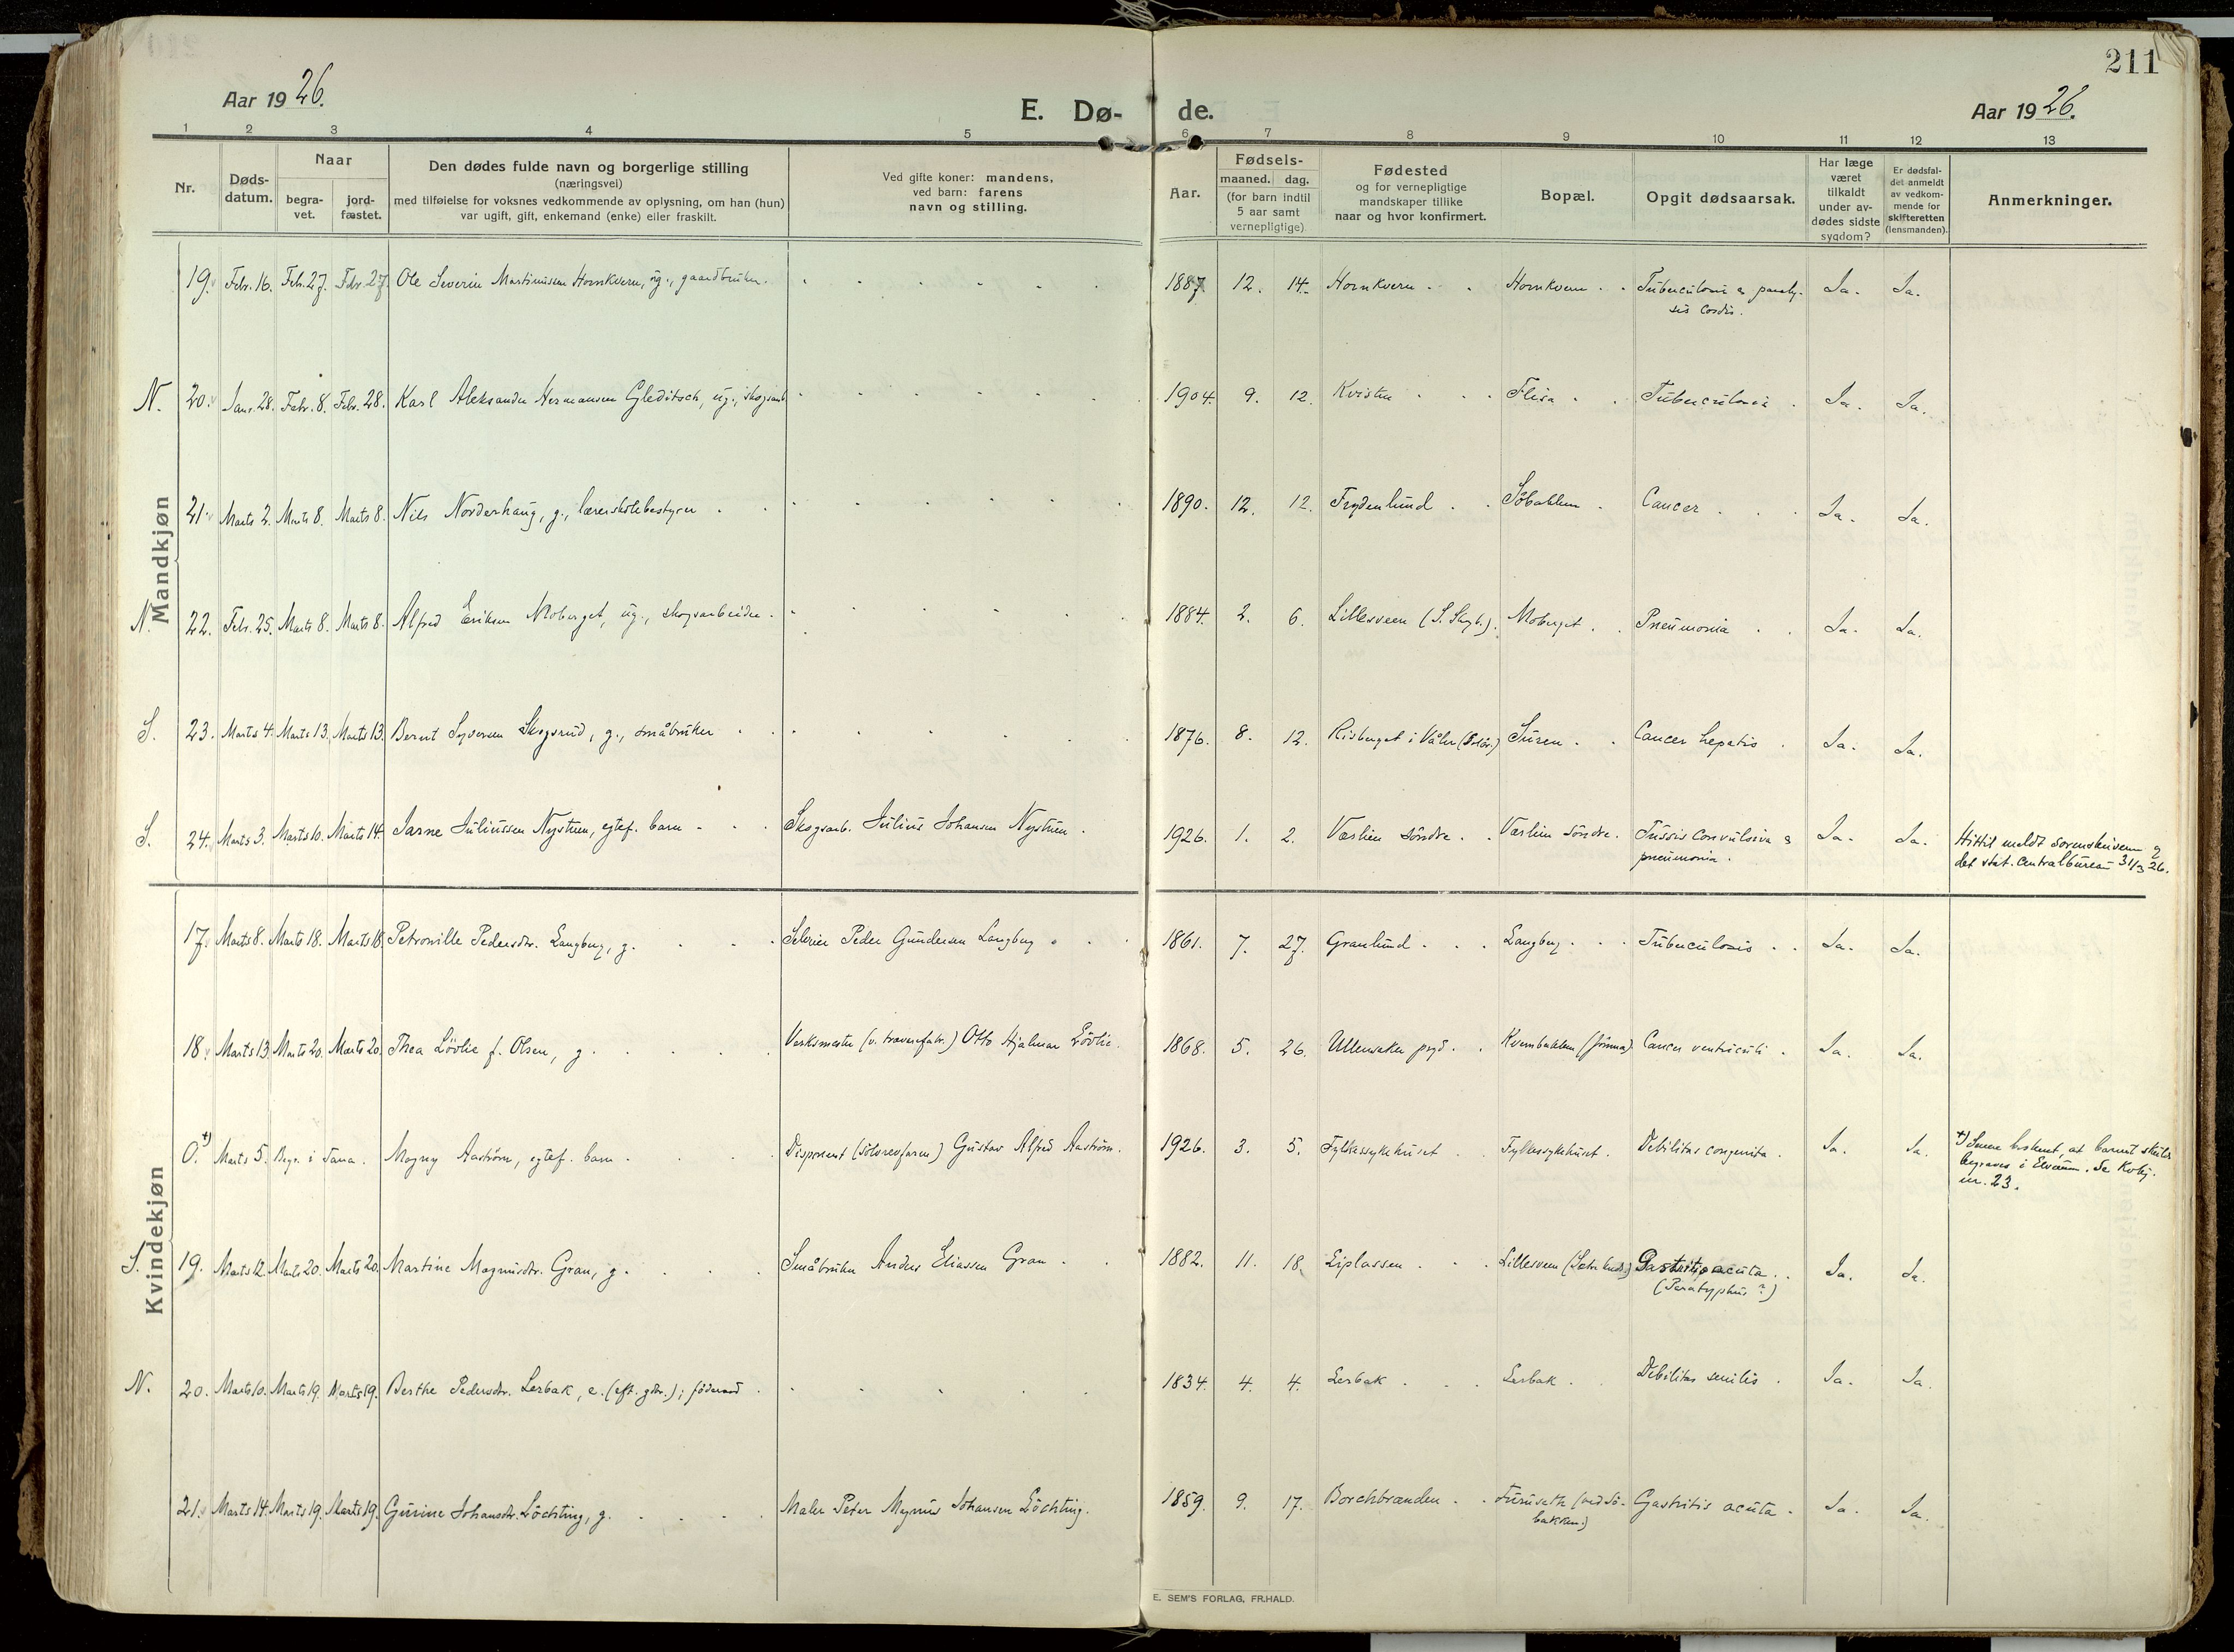 211
Aar 1926.
E. Dø-
de.
Aar 1926.
1 2 3 4 5 6 7 8 9 10 11 12 13
Nr.
Døds-
datum.
Naar
begra-
vet.
jord-
fæstet.
Den dødes fulde navn og borgerlige stilling
(næringsvei)
med tilføielse for voksnes vedkommende av oplysning, om han (hun)
var ugift, gift, enkemand (enke) eller fraskilt.
Ved gifte koner: mandens,
ved barn: farens
navn og stilling.
Aar.
Fødsels-
maaned. dag.
(for barn indtil
5 aar samt
vernepligtige)
Fødested
og for vernepligtige
mandskaper tillike
naar og hvor konfirmert.
Bopæl.
Opgit dødsaarsak.
Har læge
været
tilkaldt
under av-
dødes sidste
sygdom?
Er dødsfal-
det anmeldt
av vedkom-
mende for
skifteretten
(lensmanden).
Anmerkninger.
Mandkjøn
19. Febr. 16. Feb. 27. Febr. 27. Ole Severin Martinusen Hornkvern, ug., gaardbruker. 1887 12. 14. Hornkvern Hornkvern Tuberculosis & paraly- Ja. Ja.
sis cordis.
N. 20. Janr. 28. Febr. 8. Febr. 28. Karl Aleksander Hermansen Gleditsch, ug., skogsarb. 1904. 9. 12. Kvisten Flisa Tuberculosis Ja. Ja.
21. Marts 2. Marts 8. Marts 8. Nils Norderhaug, g., lærerskolebestyrer 1890. 12. 12. Frydenlund Søbakken Cancer Ja. Ja.
N. 22. Febr. 25. Marts 8. Marts 8. Alfred Eriksen Moberget, ug., skogsarbeider. 1884. 2. 6. Lillesveen (S. Skogb.). Moberget Pneumonia Ja. Ja.
S. 23. Marts 4. Marts 13. Marts 13. Bernt Syversen Skogsrud, g., småbruker 1876. 8. 12. Risberget i Våler (Solør.) Suren Cancer hepatis Ja. Ja.
S. 24. Marts 3. Marts 10. Marts 14. Jarne Juliussen Nystuen, egtef. barn Skogsarb. Julius Johansen Nystuen. 1926. 1. 2. Væslien søndre Væslien søndre. Tussis convulsiva & Ja. Ja. Hittil meldt sorenskriveren og
pneumonia. det stat. centralbureau 31/3 26.
Kvindekjøn
17. Marts 8. Marts 18. Marts 18. Petronille Pedersdtr. Langberg, g. Peder Gundersen Langberg 1861. 7. 27. Granlund Langberg Tuberculosis Ja. Ja.
18. Marts 13. Marts 20. Marts 20. Thea Lövlie f. Olsen, g. Verksmester (v. trævarefabr.) Otto Hjalmar Lövlie. 1868. 5. 26. Ullensaker prgd. Kvernbakken (Jömna). Cancer ventriculi Ja. Ja.
0. +) Marts 5. Begr. i Tana. Magny Aaström, egtef. barn Disponent (sölvrevfarm) Gustav Alfred Aaström. 1926. 3. 5. Fylkessykehuset Fylkessykehuset. Debilitas congenita. Ja. Ja. +) Senere bestemt, at barnet skulde
begraves i Elverum. Se Kvkj.
nr. 23.
S. 19. Marts 12. Marts 20. Marts 20. Martine Magnusdtr. Gran, g. Småbruker Anders Eliassen Gran 1882. 11. 18. Liplassen Lillesveen Gastritis acuta Ja. Ja.
(Paratyphus?)
N. 20. Marts 10. Marts 19. Marts 19. Berthe Pedersdtr. Lerbak, e. (eft. gbr.); föderaad 1834. 4. 4. Lerbak Lerbak Debilitas senilis Ja. Ja.
21. Marts 14. Marts 19. Marts 19. Gurine Johansdtr. Löchting, g. Maler Peter Magnus Johansen Löchting. 1859. 9. 17. Borchbranden Furuseth (ved Sö- Gastritis acuta Ja. Ja.
bakken.)
E. SEM'S FORLAG, FR.HALD.